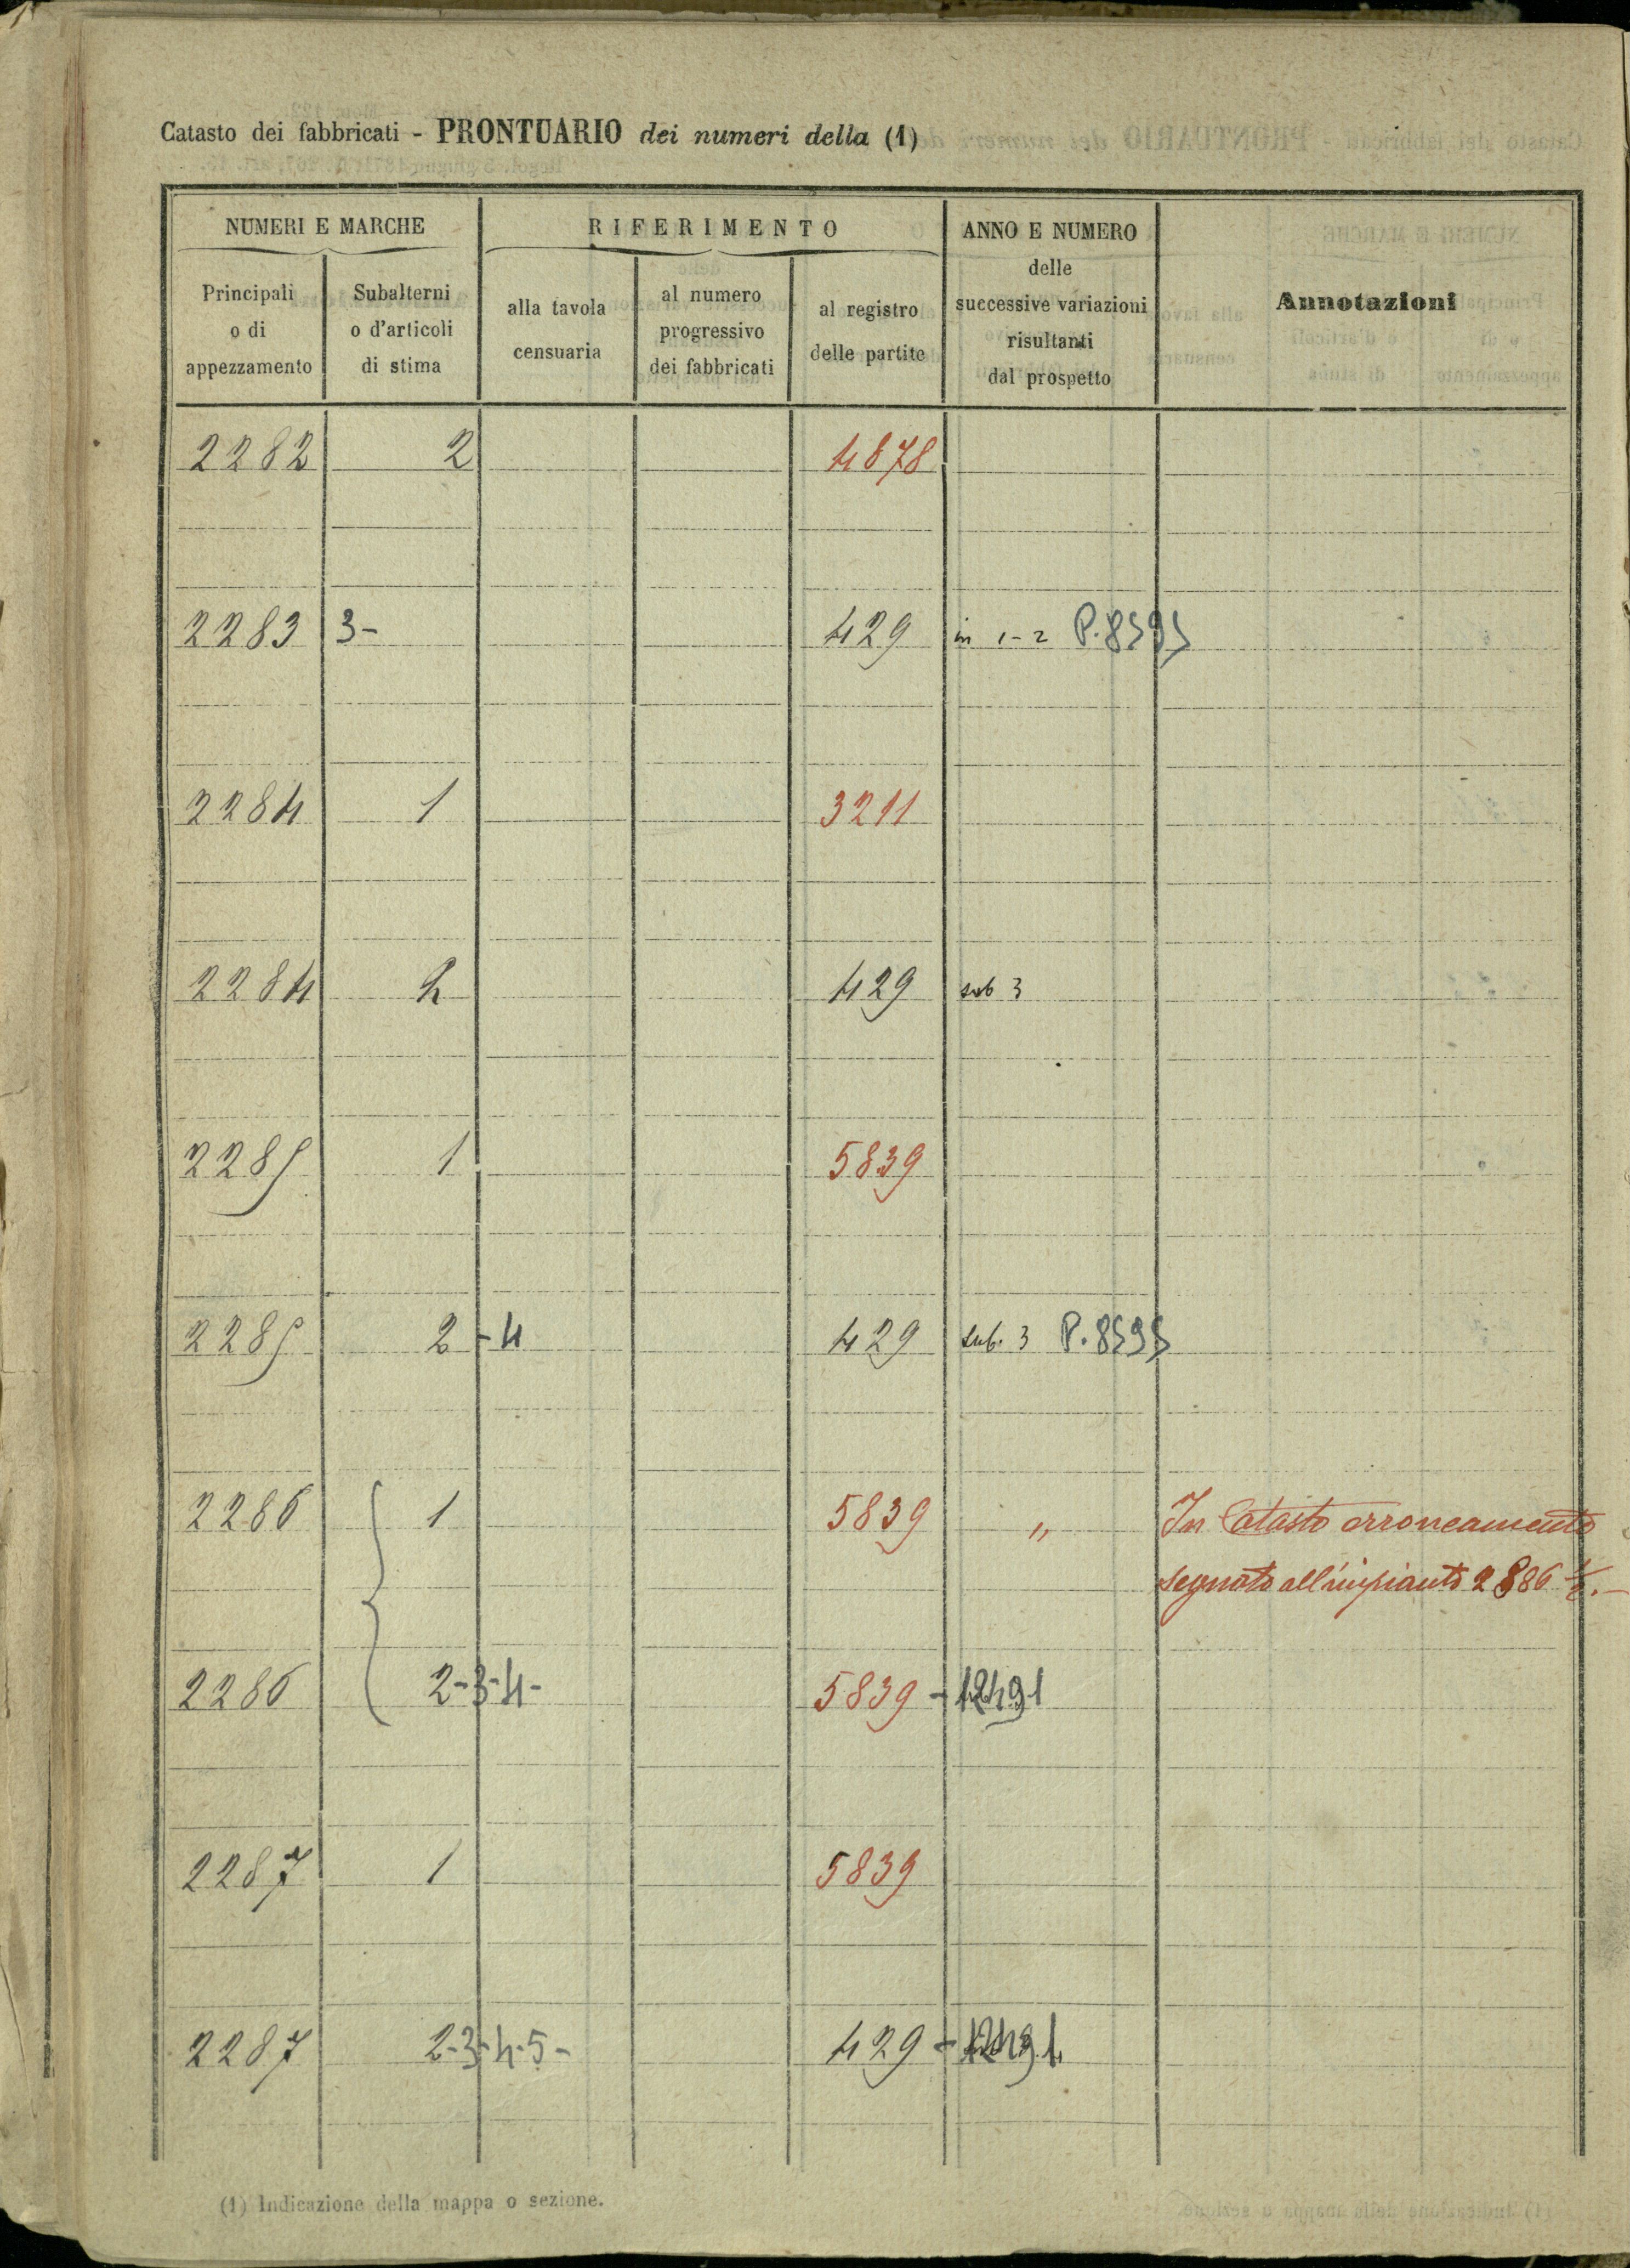 Catasto dei fabbricati - PRONTUARIO dei numeri della (1)
NUMERI E MARCHE
RIFERIMENTO
ANNO E NUMERO
delle
successive variazioni
risultanti
dal prospetto
Annotazioni
Principali
o di
appezzamento
Subalterni
o d'articoli
di stima
alla tavola
censuaria
al numero
progressivo
dei fabbricati
al registro
delle partite
2282 2 4878
2283 3- 429 in 1-2 P.8595
2284 1 3211
2284 2 429 sub 3
2285 1 5839
2285 2-4 429 sub. 3 P.8595
2286 1 5839 " In Catasto erroneamente
segnato all'impianto 2886 1/2.-
2286 2-3-4- 5839-12491
2287 1 5839
2287 2-3-4-5- 429-12491
(1) Indicazione della mappa o sezione.